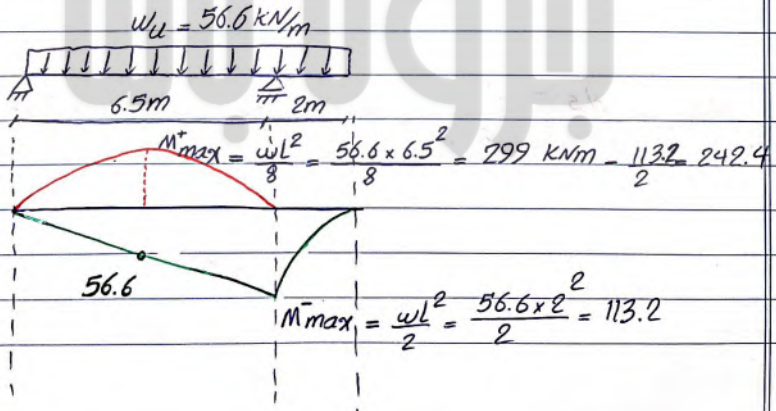 wu = 56.6 kN/m
6.5m 2m
M⁺max = ωl²/8 = 56.6 × 6.5²/8 = 299 kNm - 113.2/2 = 242.4
56.6
M⁻max = ωl²/2 = 56.6 × 2²/2 = 113.2